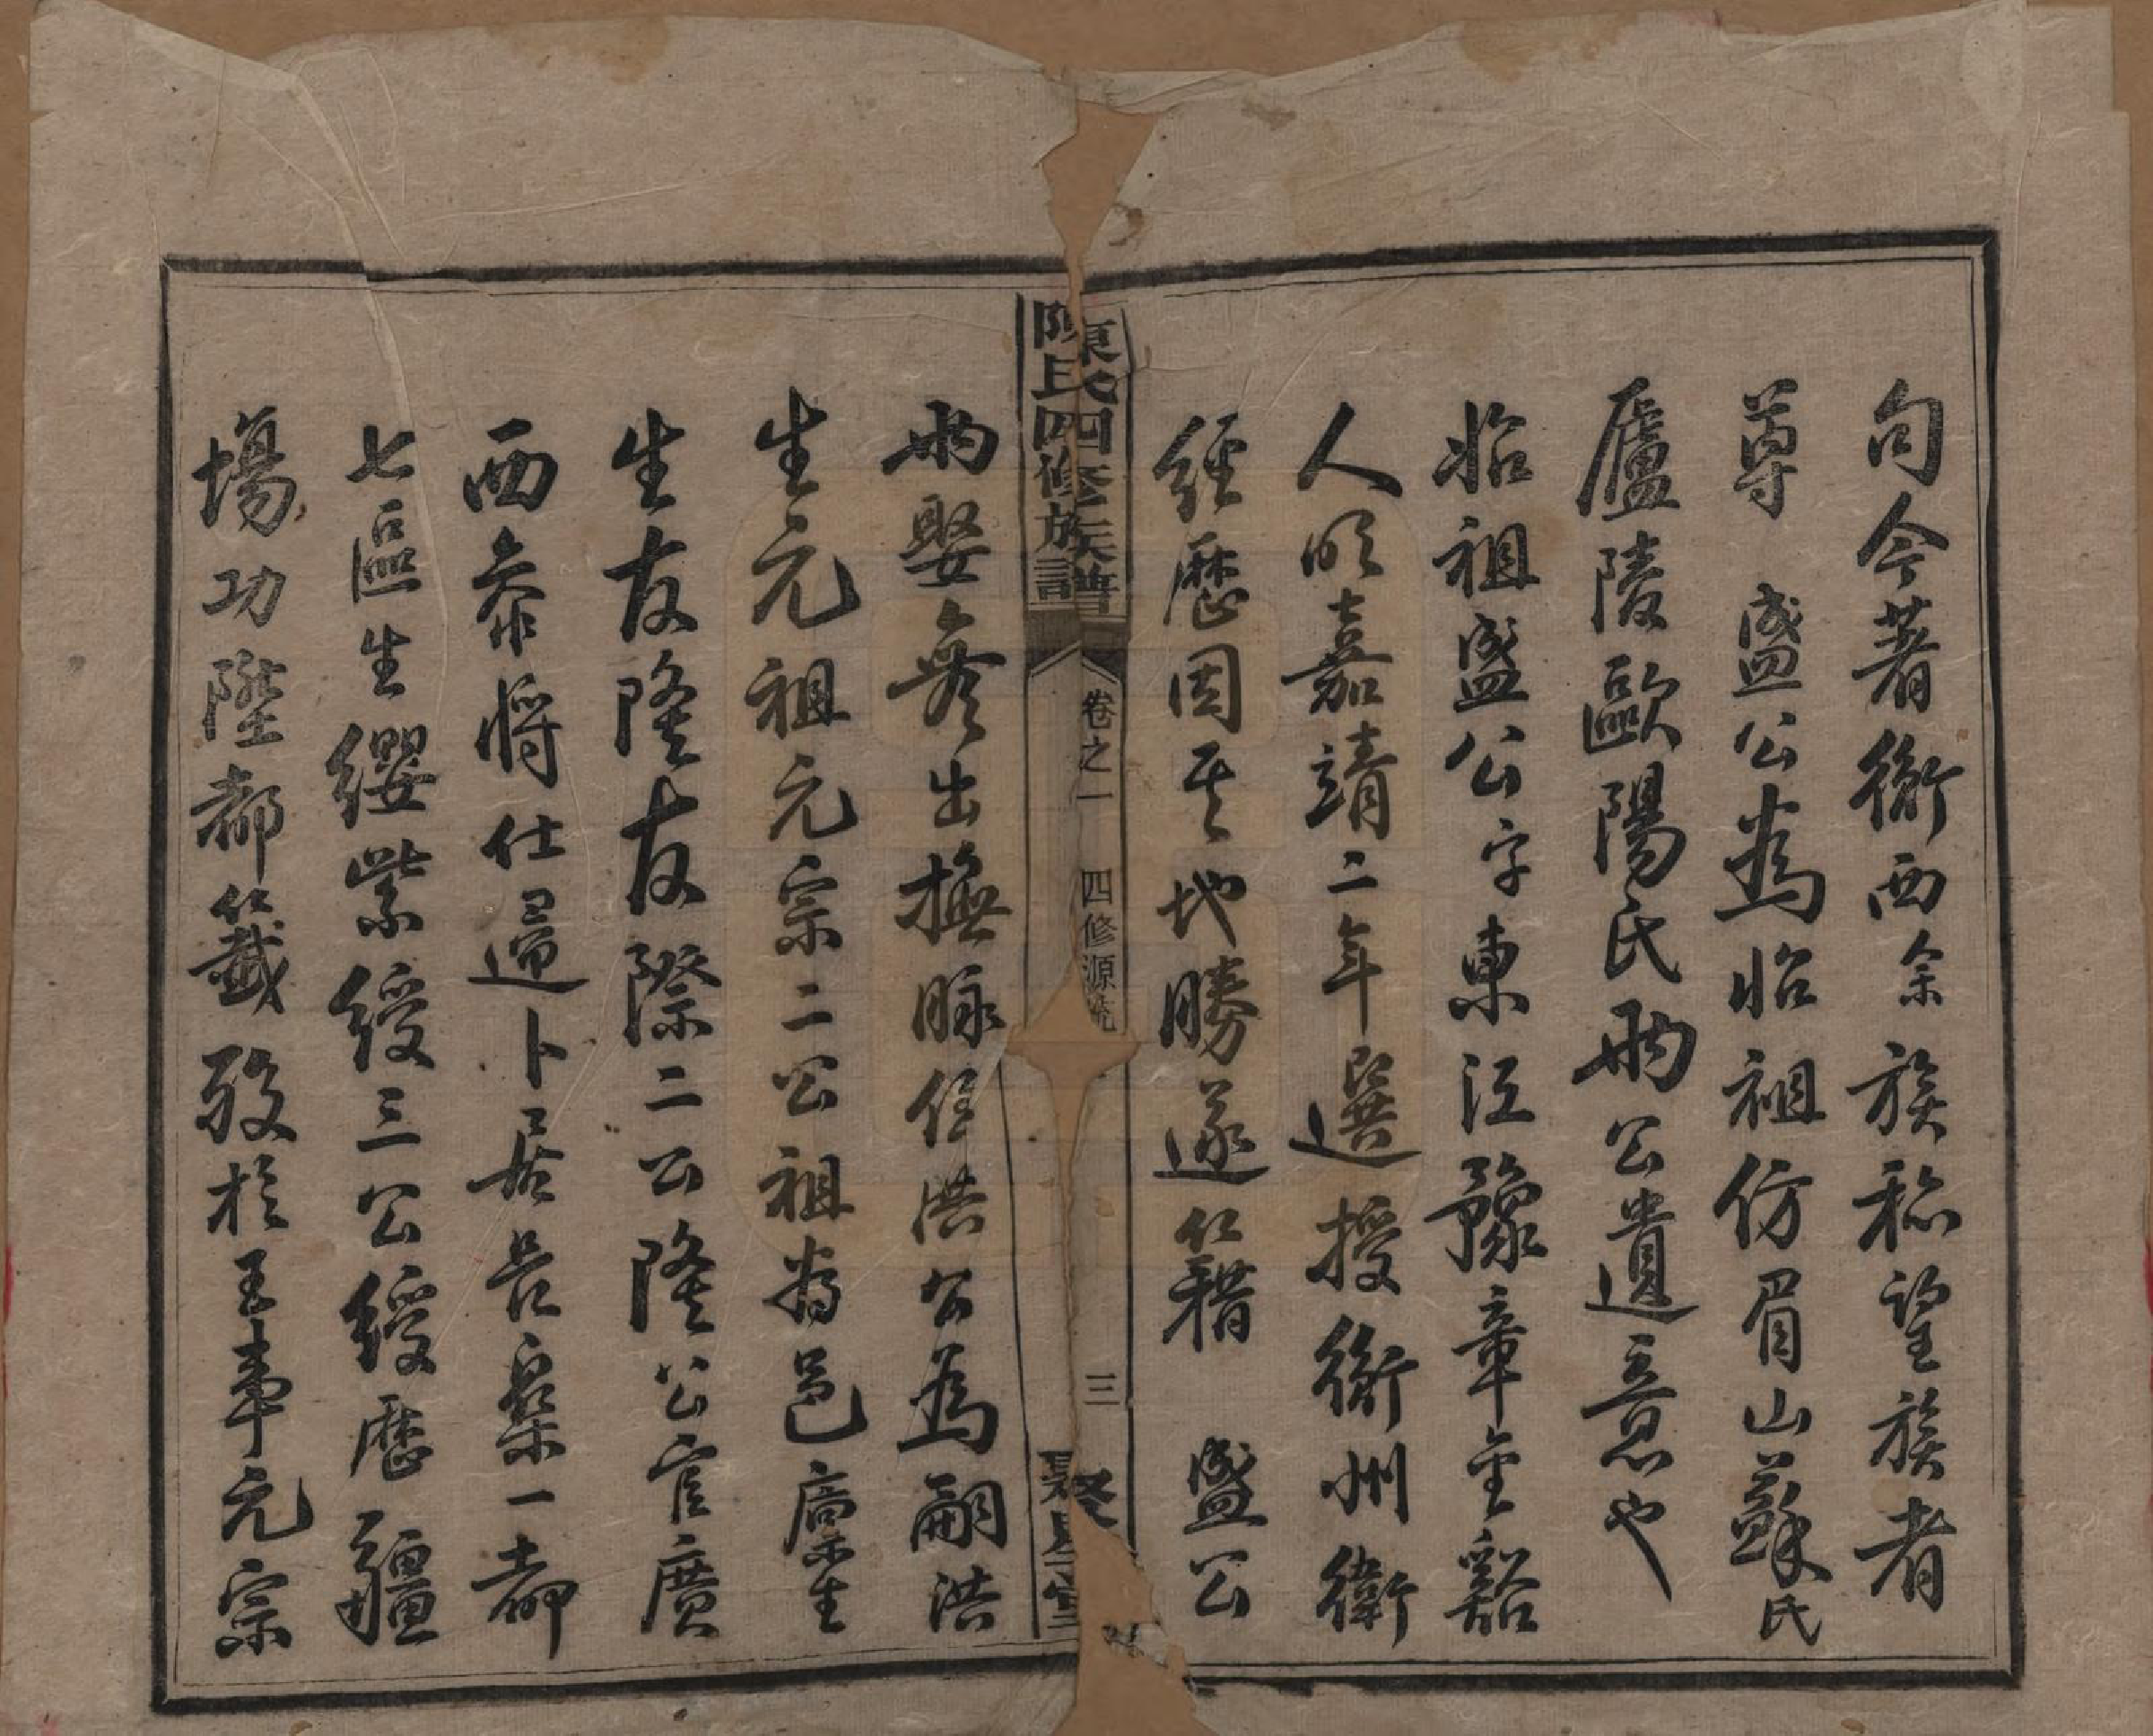 句今著衡西余族称望族者
尊　盛公為始祖仿眉山蘇氏
廬陵歐陽氏兩公遺意也
始祖盛公字東江豫章金谿
人明嘉靖二年選授衡州衛
經歷因其地勝遂籍　盛公
陳氏四修族譜
卷之一　四修源流
三
聚星堂
兩娶無出撫脉侄洪公為嗣洪
生元祖元宗二公祖為邑廪生
生友隆友際二公隆公官廣
西泰將仕還卜居長樂一都
七區生纓紫綬三公綬歷疆
場功陞都籤歿於王事元宗